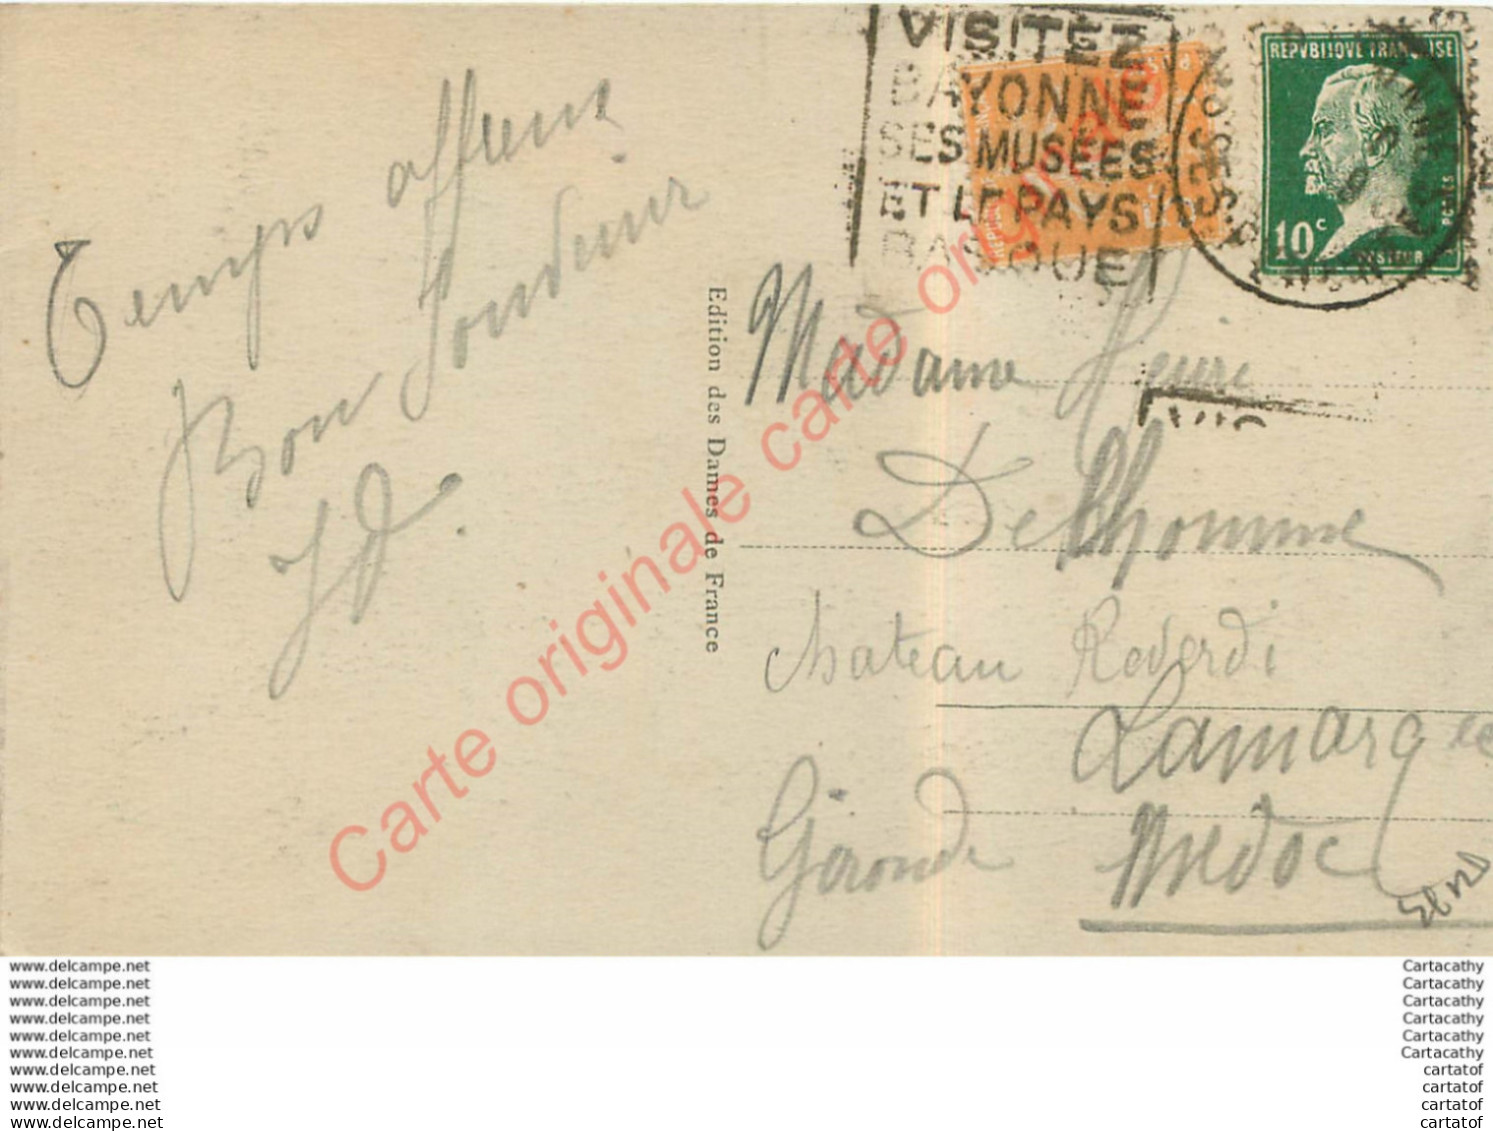 Temps affreux
Bon souvenir
JD.
Edition des Dames de France
VISITEZ
BAYONNE
SES MUSÉES
ET LE PAYS
BASQUE
REPVBLIQVE FRANÇAISE
10c
PASTEUR
POSTES
Madame Henri
Delhomme
Chateau Reverdi
Lamarque
Gironde Medoc
Carte originale carte originale
www.delcampe.net
www.delcampe.net
www.delcampe.net
www.delcampe.net
www.delcampe.net
www.delcampe.net
www.delcampe.net
www.delcampe.net
www.delcampe.net
www.delcampe.net
Cartacathy
Cartacathy
Cartacathy
Cartacathy
Cartacathy
Cartacathy
cartatof
cartatof
cartatof
cartatof